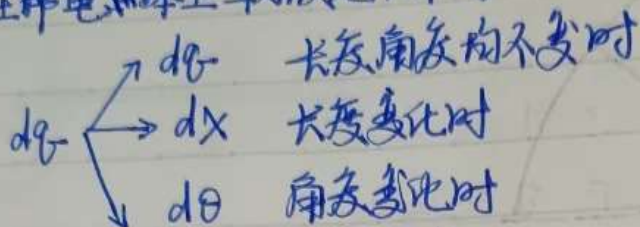 dq 长度角度均不变时
dq → dx 长度变化时
dθ 角度变化时